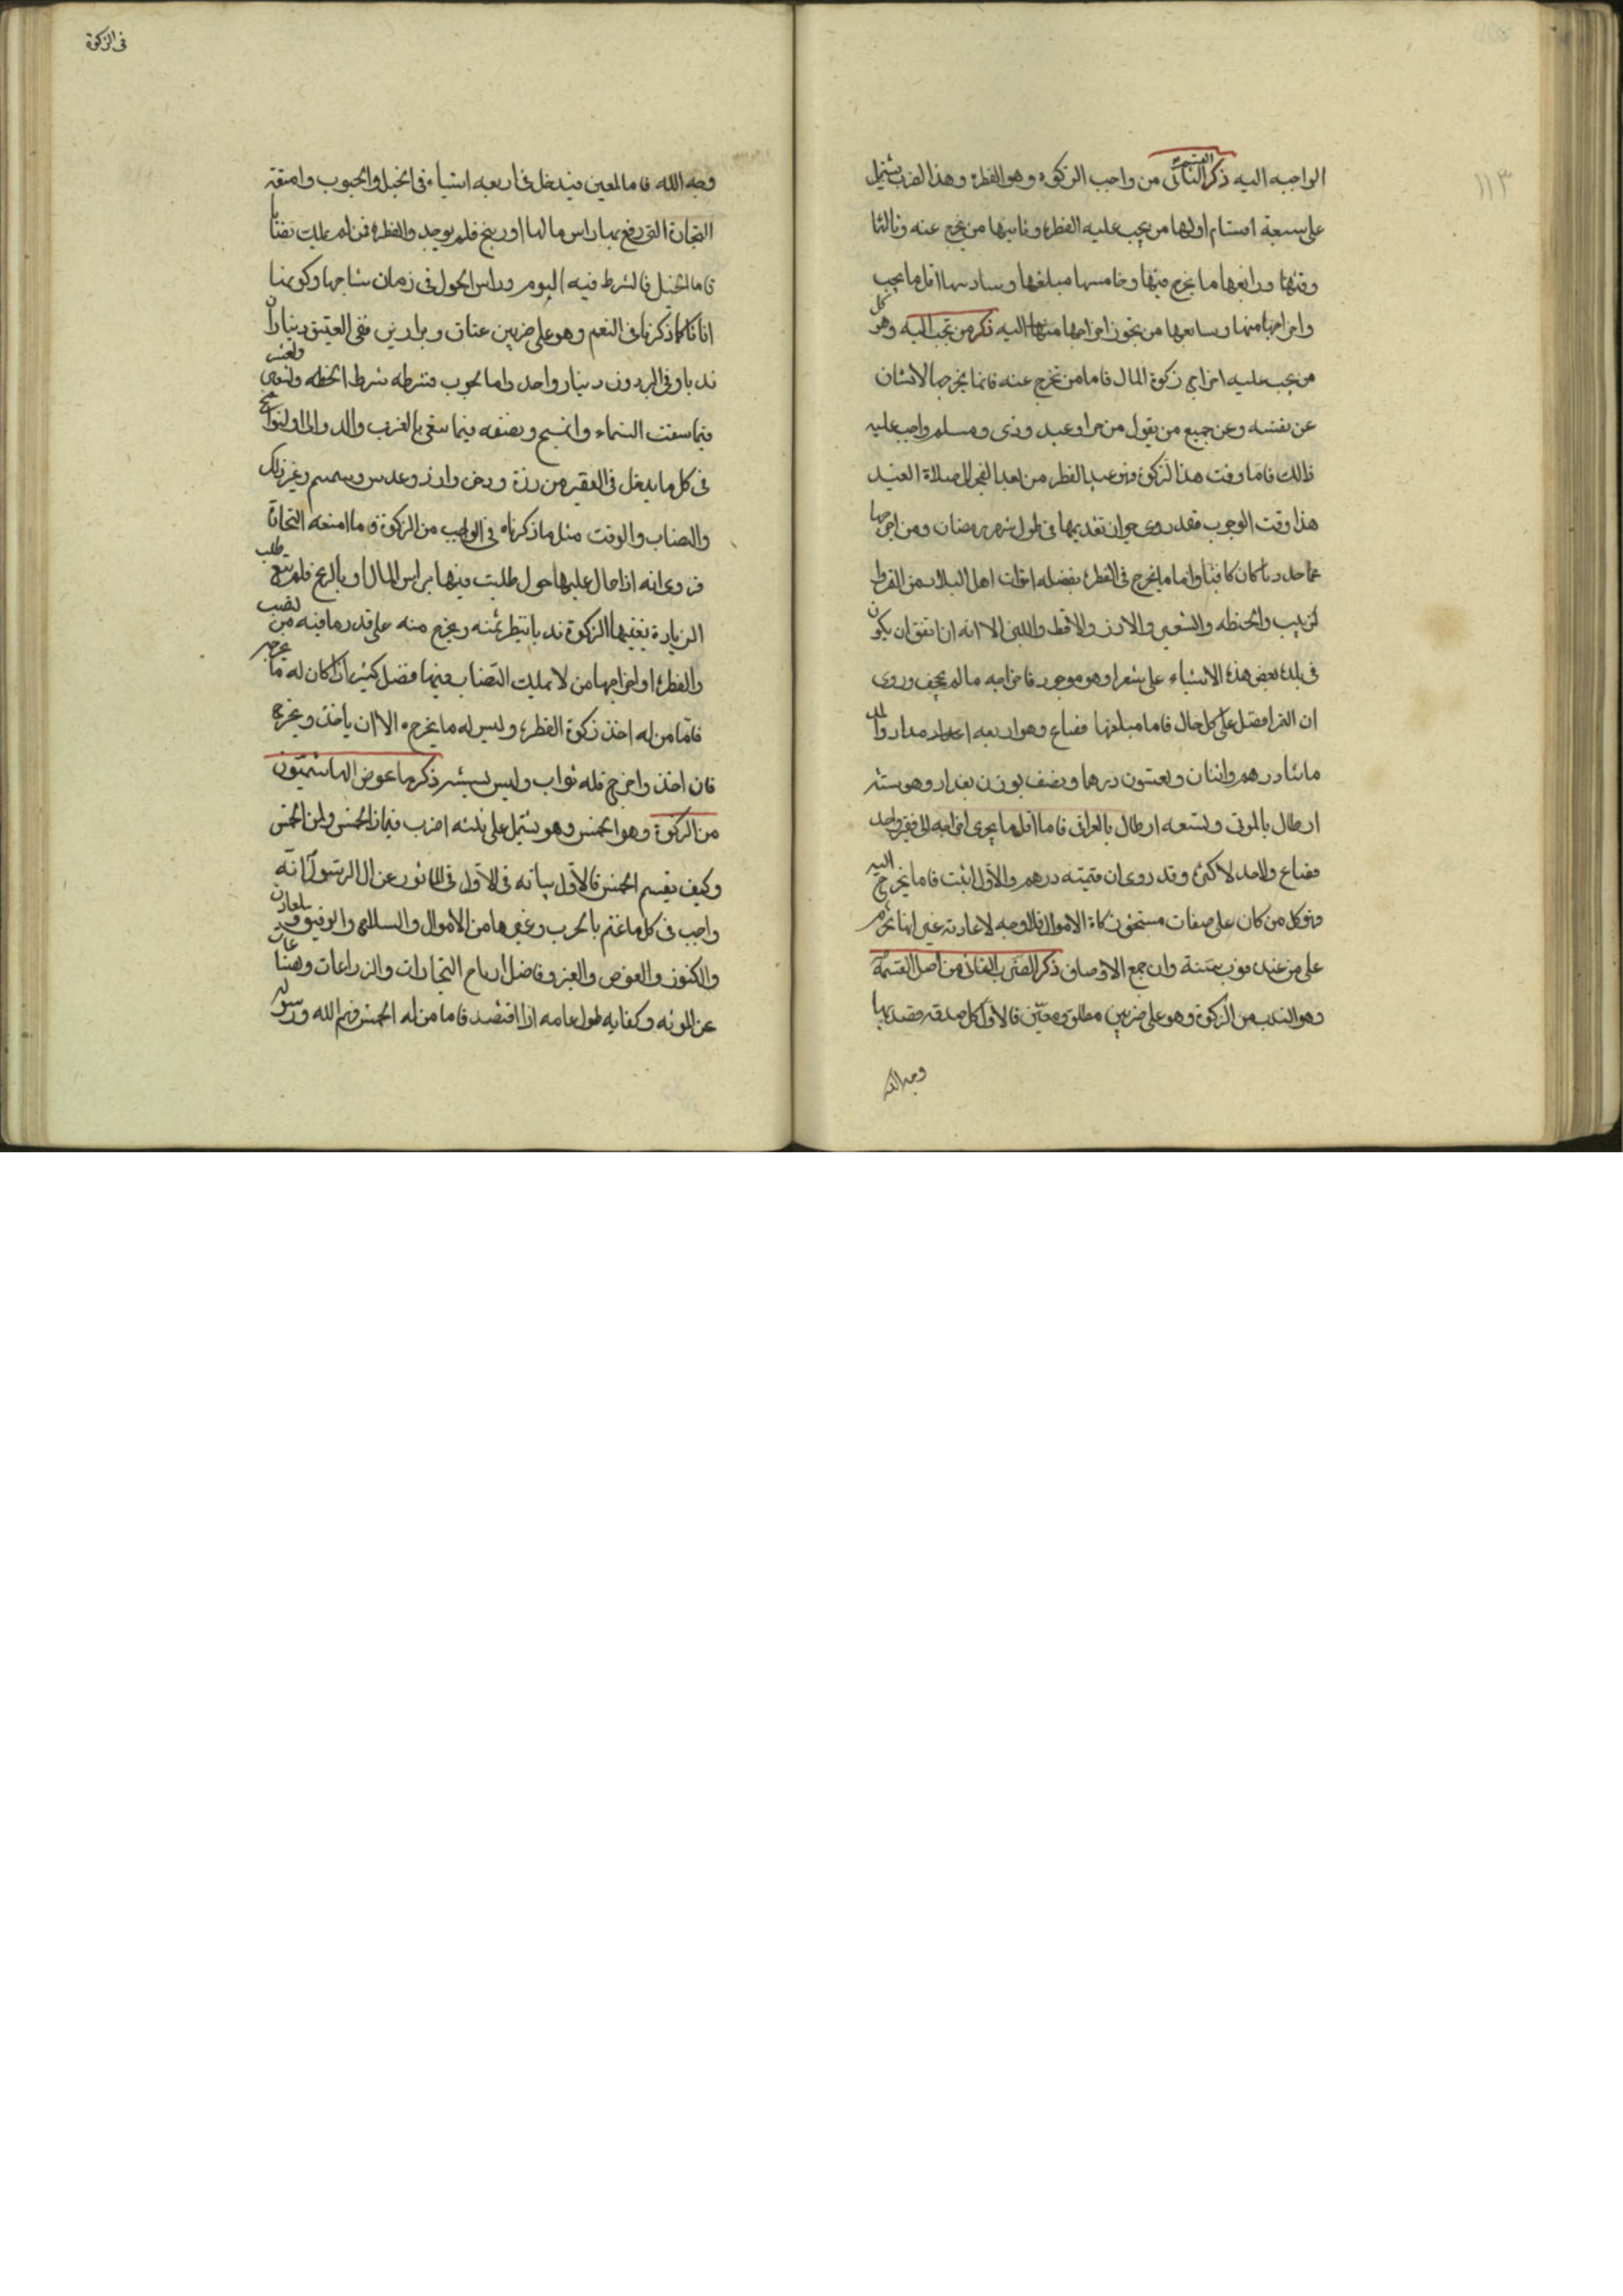 ١١٣
الواجبه اليه ذكر القسم الثاني من واجب الزكوه وهو الفطرة وهذا الضرب يشتمل
على سبعة اقسام اولها من يجب عليه الفطرة وثانيها من يخرج عنه وثالثا
وقتها ورابعها ما يخرج فيها وخامسها مبلغها وسادسها اقل ما يجب
واخراجها منها وسابعها من يجوز اخراجها اليه ذكر من تجب اليه وهو كل
من يجب عليه اخراج زكوة المال فاما من تخرج عنه فانما يخرجها الانسان
عن نفسه وعن جميع من يعول من حر او عبد وذمى ومسلم واجب عليه
ذالك فاما وقت هذا الزكوة فهو عيد الفطر من بعد الفجر الى صلاة العيد
هذا وقت الوجوب فقد روى جواز تقديمها فى طول شهر رمضان ومن اخرجها
فى بلده بعض هذه الاشياء على سعرا وهو موجود فاخراجه ما لم يجحف وروى
ان التمر افضل على كل حال فاما مبلغها فصاع وهو اربعه امداد
مائتا درهم واثنان وتسعون درهما ونصف بوزن بغداد وهو ستة
ارطال بالمدنى وتسعه ارطال بالعراقى فاما اقل ما يجرى اخراجه الى فقير واحد
فصاع ولاحد لاكثره وقد روى ان قيمته درهم والاول اثبت فاما يخرج اليه
فهو كل من كان على صفات مستحق زكاة الاموال فلا وجه لاعادته غير انها تحرم
على من عنده قوت سنة وان جمع الاوصاف ذكر الضرب الثانى من اصل القسمة
وهو الندب من الزكوة وهو على ضربين مطلق ومعين فالاول كل صدقه قصد بها
وجه الله
فى الزكوة
وجه الله فاما المعين فيدخل فى اربعه اشياء فى الخيل والحبوب وامتعة
التجارة التى دفع بها راس مالها او ربح فلم يوجد والفطرة فمن لم يملك نصابا
فاما الخيل فالشرط فيه السوم وراس الحول فى زمان نتاجها وكونها
اناثا كما ذكرنا فى النعم وهو على ضربين عتاق وبراذين ففى العتيق ديناران
ندبا وفى البردون دينار واحد واما الحبوب فشرطه شرط الحنطه والشعير والعشر
فيما سقت السماء والسيح ونصفه فيما سقى بالغرب والدوالى او النواضح
فى كل ما يدخل فى القفيز من ذرة ودخن وارز وعدس وسمسم وغير ذلك
والنصاب والوقت مثل ما ذكرناه فى الواجب من الزكوة واما امتعه التجارة
فروى انه اذا حال عليها حول طلبت فيها براس المال او بالربح فلم تبع طلب
الزيادة ففيها الزكوة ندبا ينتظر ثمنه ويخرج منه على قدر ما فيه من نصيب
والفطرة او اخراجها من لا يملك النصاب فيها فضل كثير اذا كان له ما يخرجه
فاما من له اخذ زكوة الفطرة وليس له ما يخرجه الا ان ياخذ ويخرج
فان اخذ واخرج فله ثواب وليس بسىء ذكر ما عوض الهاشميون
من الزكوة وهو الخمس وهو يشتمل على ثلثه اضرب فيماذا الخمس ولمن الخمس
وكيف يقسم الخمس فالاول بيانه فى الاول فى الماثور عن ال الرسول انه
واجب فى كل ما غنم بالحرب وغيرها من الاموال والسلاح والرقيق والمعادن
والكنوز والغوص والعنبر وفاضل ارباح التجارات والزراعات
عن المونه وكفايه طول عامه اذا اقتصد فاما من له الخمس فهم الله ورسوله